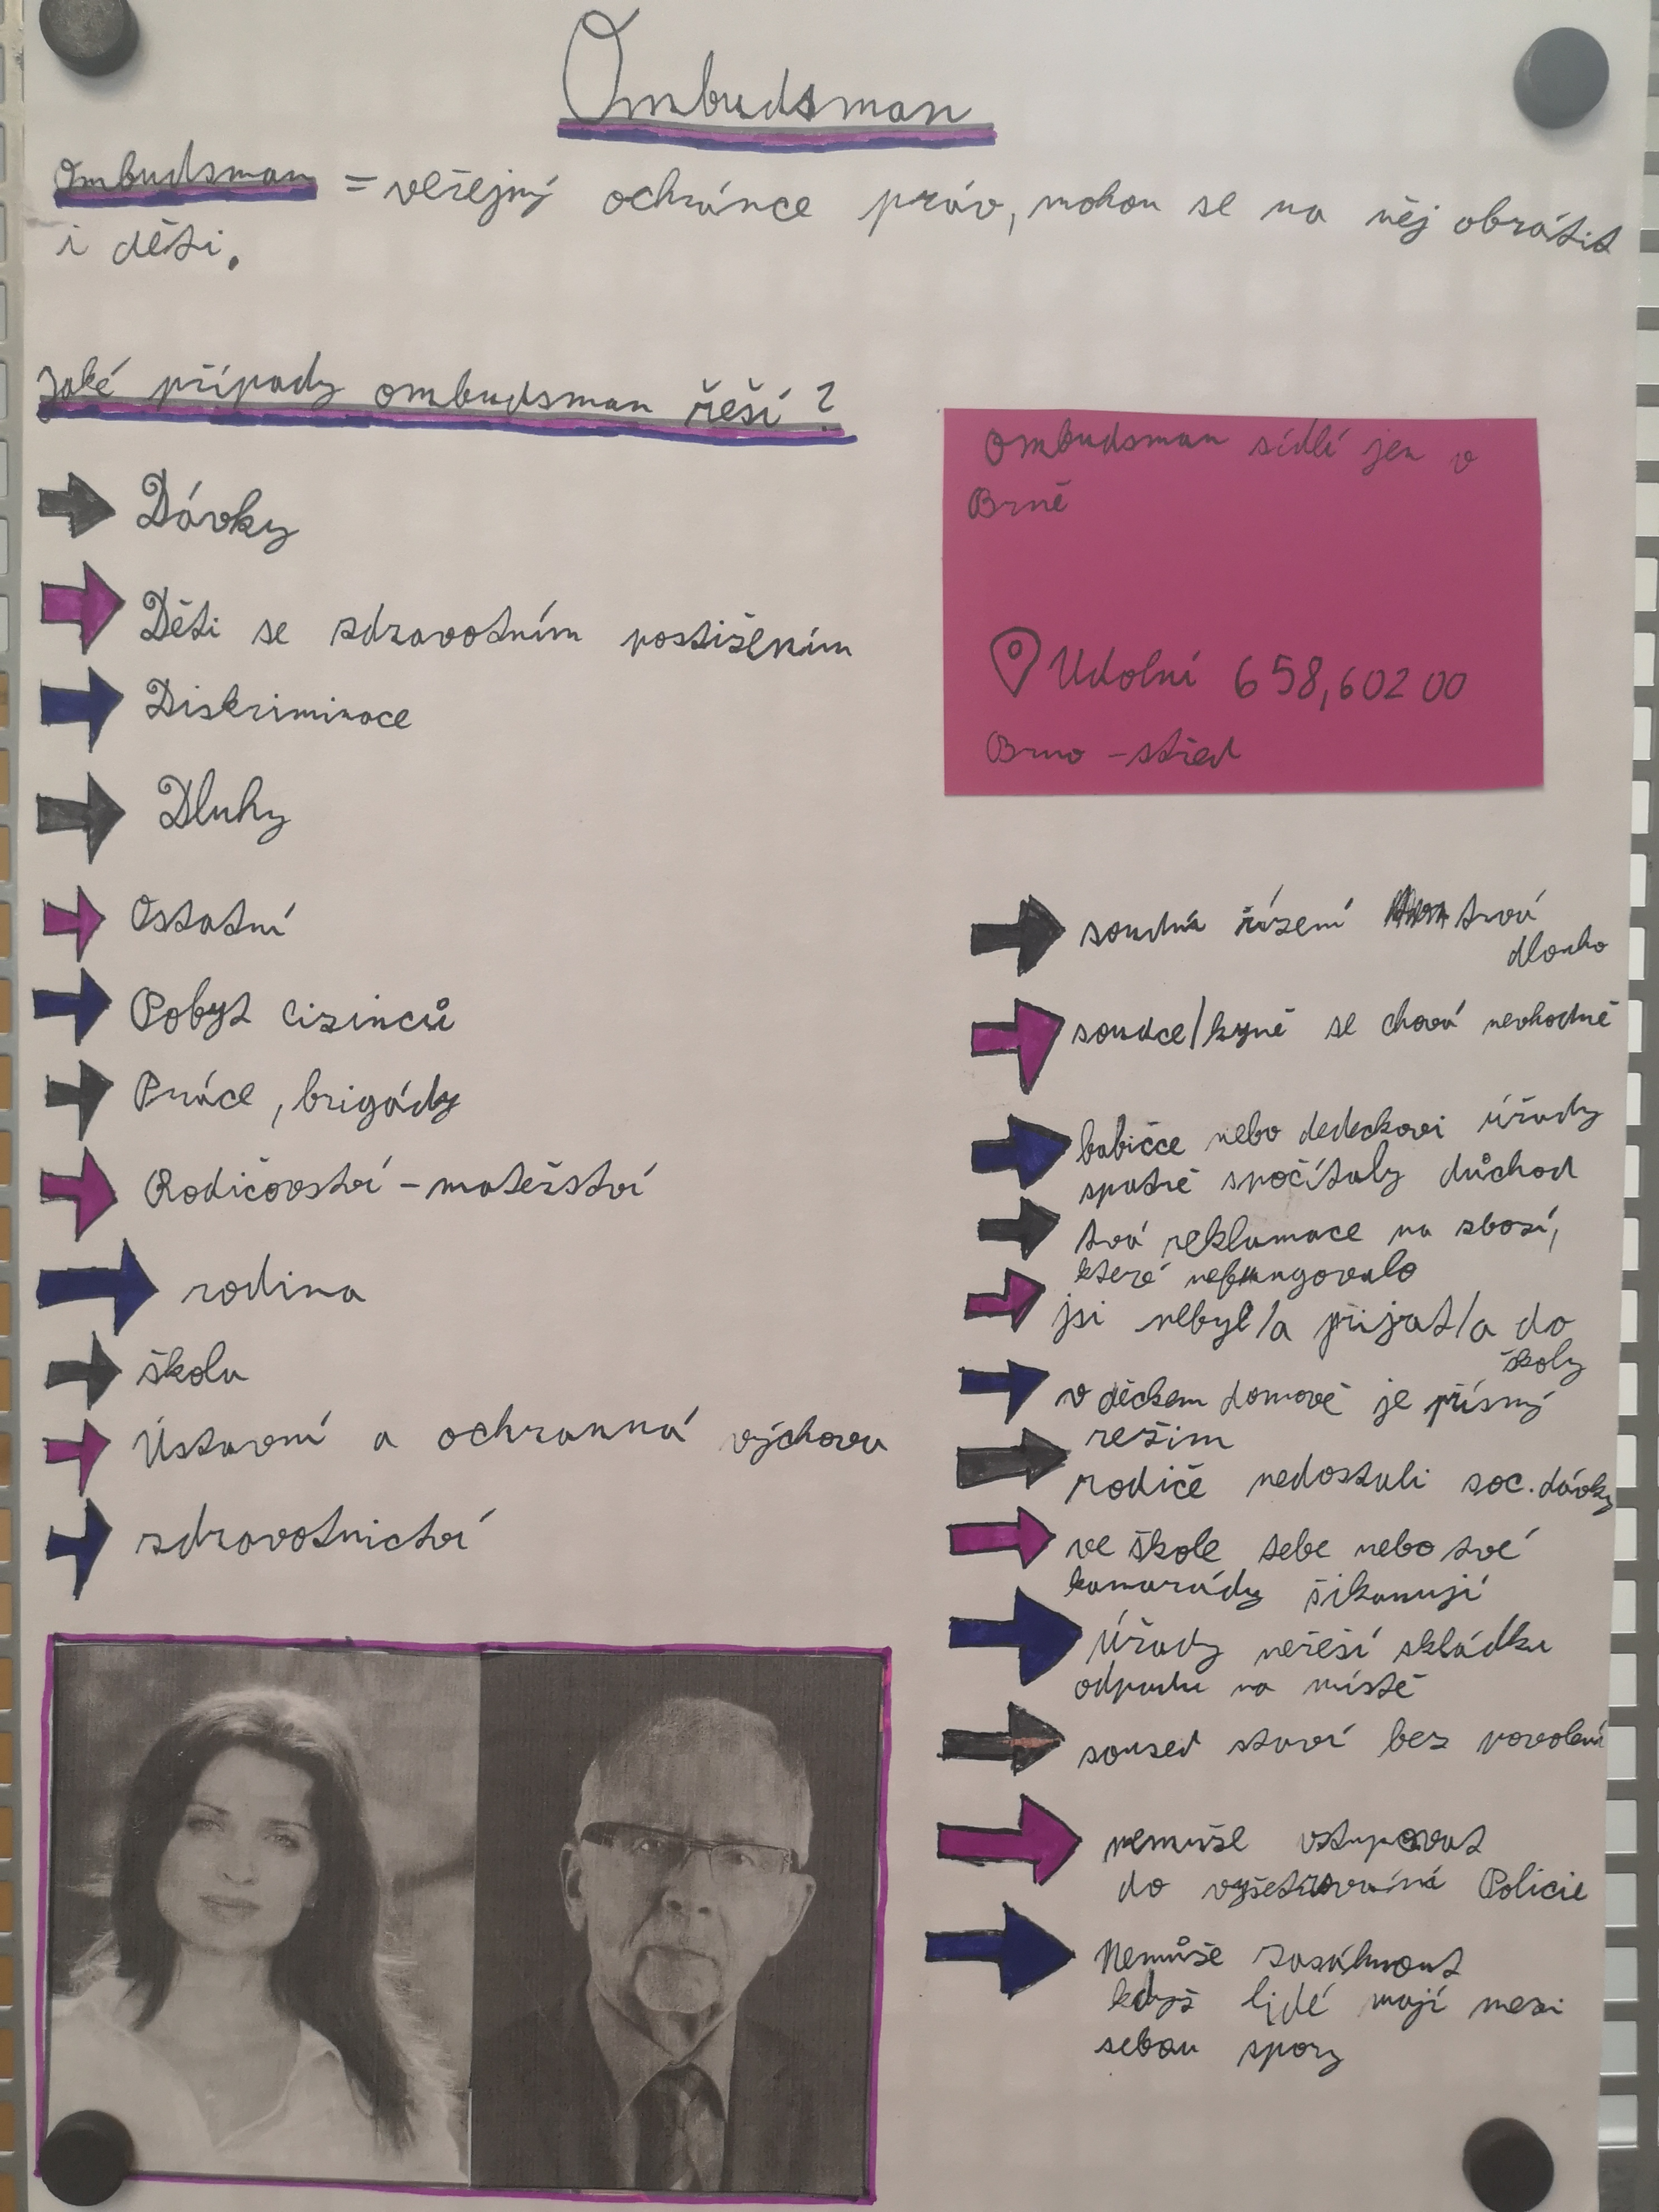 Ombudsman
Ombudsman = veřejný ochránce práv, mohou se na něj obrátit
i děti.
Jaké případy ombudsman řeší?
Dávky
Děti se zdravotním postižením
Diskriminace
Dluhy
Ostatní
Pobyt cizinců
Práce, brigády
Rodičovství - mateřství
rodina
škola
Ústavní a ochranná výchova
zdravotnictví
Ombudsman sídlí jen v
Brně
Udolní 658, 602 00
Brno - střed
soudní řízení trvá
dlouho
soudce/kyně se chová nevhodně
babičce nebo dedeckovi úřady
spatně spočítaly důchod
tvá reklamace na zbozí,
které nefungovalo
jsi nebyl/a přijat/a do
školy
v děckem domově je přísný
režim
rodiče nedostali soc. dávky
ve škole tebe nebo tvé
kamarády šikanují
Úřady neřeší skládku
odpadu na místě
soused staví bez povolení
nemuže vstupovat
do vyšetřování Policie
Nemůže zasáhnout
když lidé mají mezi
sebou spory